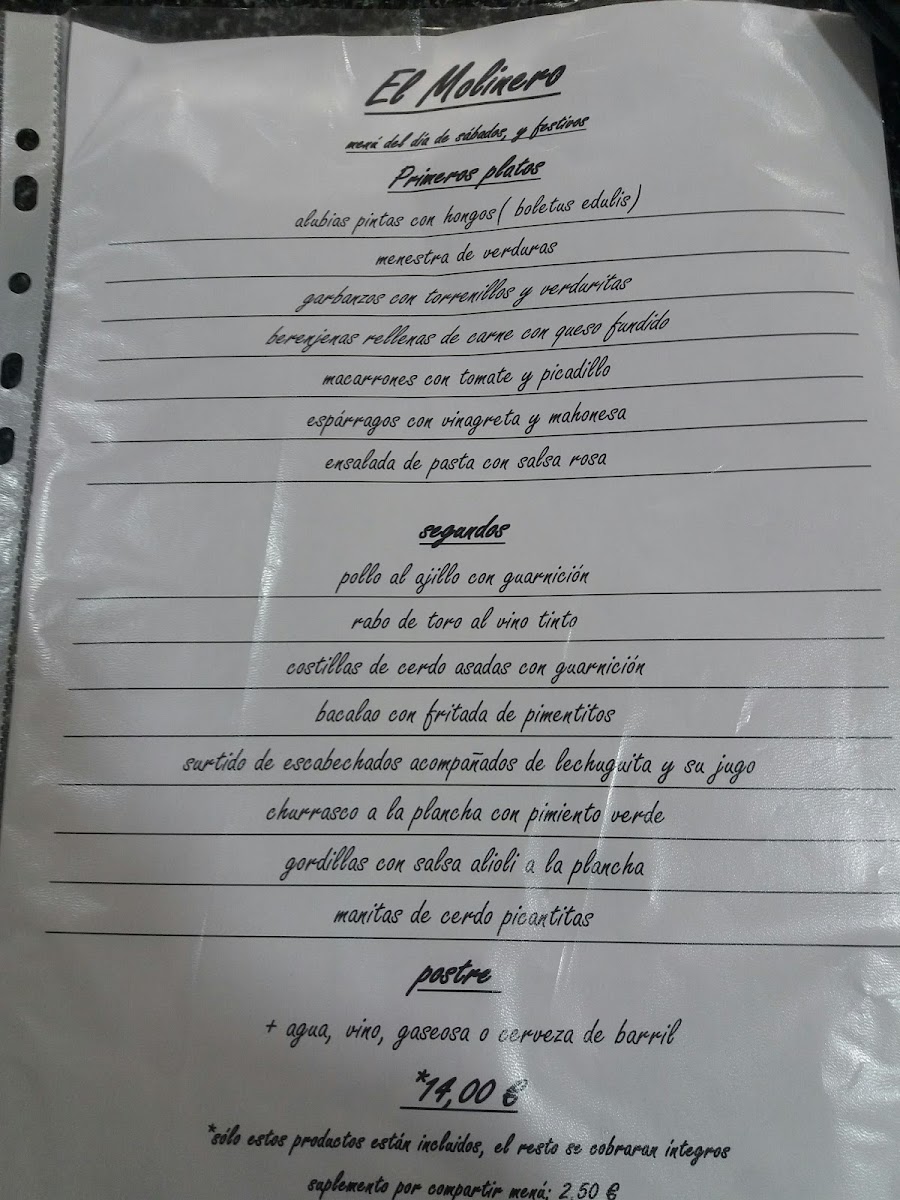 El Molinero
menú del día de sábados, y festivos
Primeros platos
alubias pintas con hongos( boletus edulis)
menestra de verduras
garbanzos con torrenillos y verduritas
berenjenas rellenas de carne con queso fundido
macarrones con tomate y picadillo
espárragos con vinagreta y mahonesa
ensalada de pasta con salsa rosa
segundos
pollo al ajillo con guarnición
rabo de toro al vino tinto
costillas de cerdo asadas con guarnición
bacalao con fritada de pimentitos
surtido de escabechados acompañados de lechuguita y su jugo
churrasco a la plancha con pimiento verde
gordillas con salsa alioli a la plancha
manitas de cerdo picantitas
postre
+ agua, vino, gaseosa o cerveza de barril
*14,00 €
*sólo estos productos están incluidos, el resto se cobraran íntegros
suplemento por compartir menú: 2,50 €